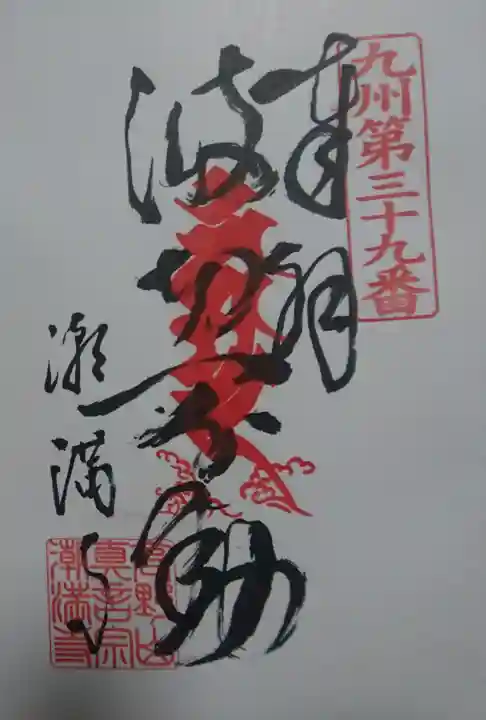 九州第三十九番
奉拝
波切不動
潮満寺
高野山
真言宗
潮満寺